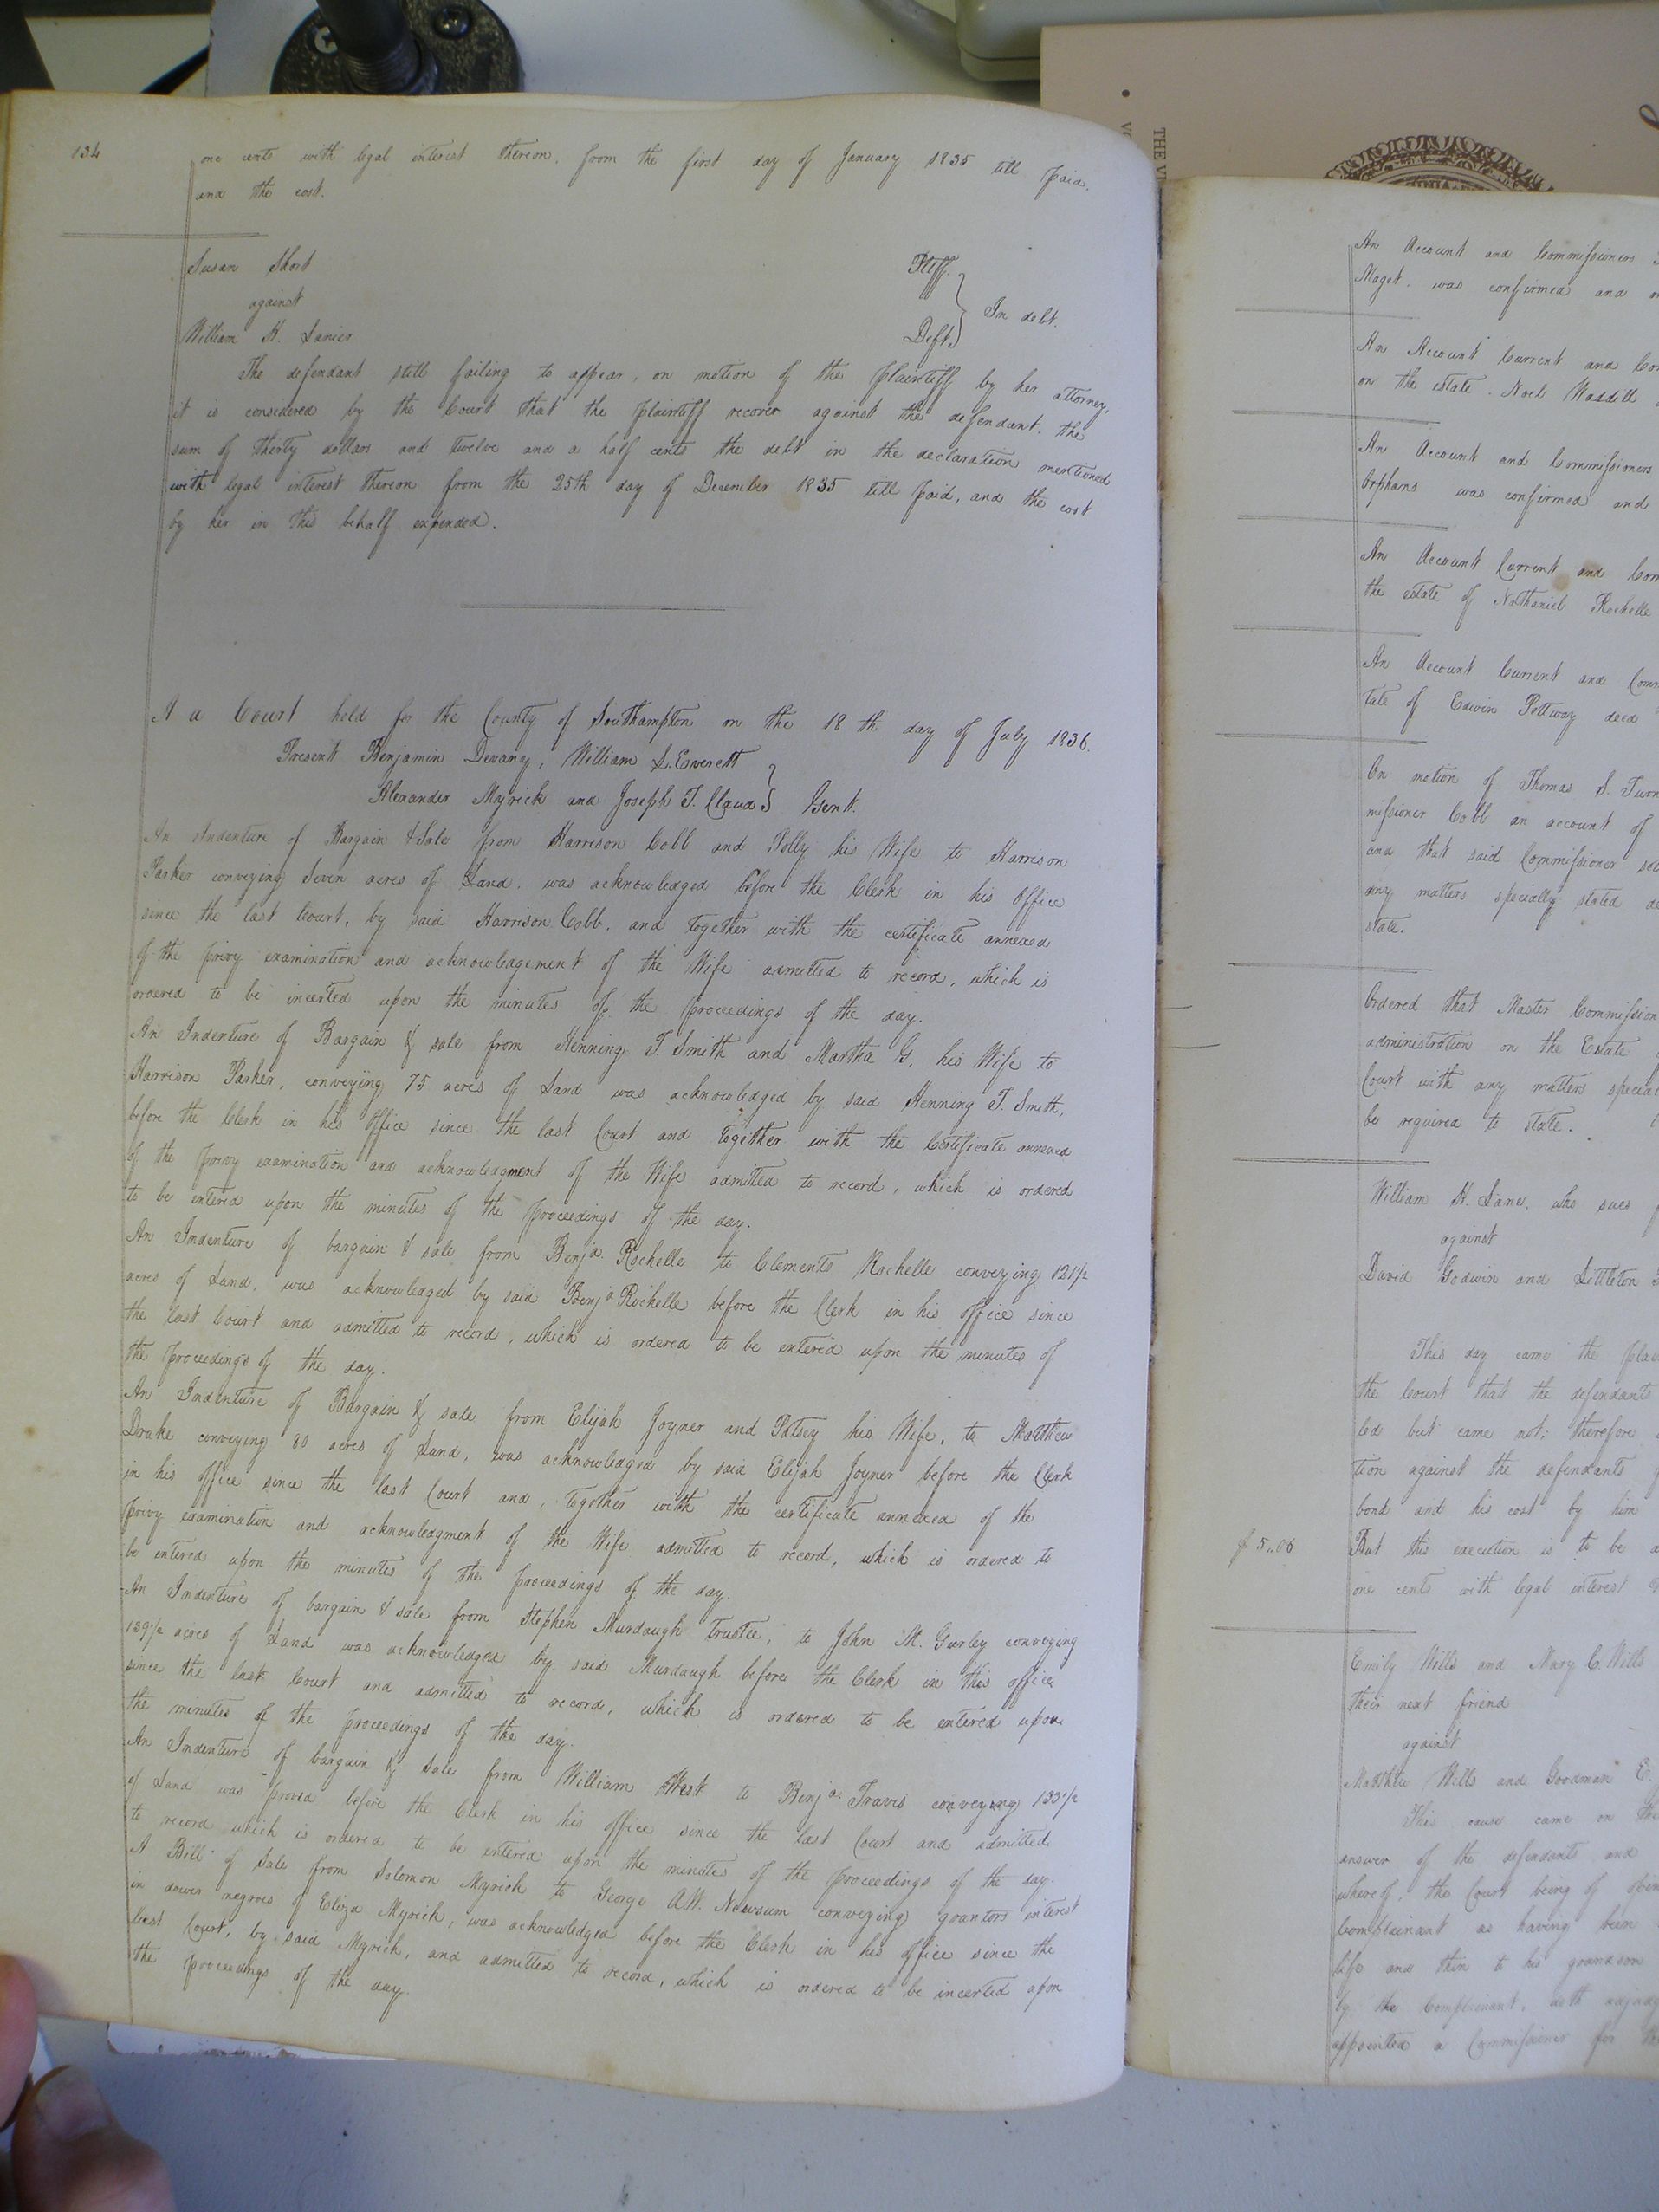 134
one cents with legal interest thereon, from the first day of January 1835 till paid.
and the cost.
Susan Short
Pltff.
against
In debt.
William H. Lanier
Deft.
The defendant still failing to appear, on motion of the plaintiff by her attorney,
it is considered by the Court that the plaintiff recover against the defendant the
sum of thirty dollars and twelve and a half cents the debt in the declaration mentioned
with legal interest thereon from the 25th day of December 1835 till paid, and the cost
by her in this behalf expended.
A a Court held for the County of Southampton on the 18th day of July 1836.
Present Benjamin Devany, William S. Everett
Alexander Myrick and Joseph T. Claud Gent.
An Indenture of Bargain & Sale from Harrison Cobb and Polly his Wife to Harrison
Parker conveying Seven acres of Land, was acknowledged before the Clerk in his Office
since the last Court, by said Harrison Cobb, and together with the certificate annexed
of the privy examination and acknowledgement of the Wife admitted to record, which is
ordered to be incerted upon the minutes of the proceedings of the day.
An Indenture of Bargain & sale from Henning T. Smith and Martha G. his Wife to
Harrison Parker, conveying 75 acres of Land was acknowledged by said Henning T. Smith,
before the Clerk in his Office since the last Court and together with the Certificate annexed
of the privy examination and acknowledgment of the Wife admitted to record, which is ordered
to be entered upon the minutes of the proceedings of the day.
An Indenture of bargain & sale from Benja Rochelle to Clements Rochelle conveying 121 1/2
acres of Land, was acknowledged by said Benja Rochelle before the Clerk in his office since
the last Court and admitted to record, which is ordered to be entered upon the minutes of
the proceedings of the day.
An Indenture of Bargain & sale from Elijah Joyner and Patsey his Wife, to Matthew
Drake conveying 80 acres of Land, was acknowledged by said Elijah Joyner before the Clerk
in his office since the last Court and, together with the certificate annexed of the
privy examination and acknowledgment of the Wife admitted to record, which is ordered to
be entered upon the minutes of the proceedings of the day.
An Indenture of bargain & sale from Stephen Murdaugh trustee, to John M. Gurley conveying
139 1/2 acres of Land was acknowledged by said Murdaugh before the Clerk in this office
since the last Court and admitted to record, which is ordered to be entered upon
the minutes of the proceedings of the day.
An Indenture of bargain & sale from William West to Benja Travis conveying 133 1/2
of Land was proved before the Clerk in his office since the last Court and admitted
to record which is ordered to be entered upon the minutes of the proceedings of the day.
A Bill of Sale from Solomon Myrick to George A.W. Newsum conveying grantors interest
in dower negroes of Eliza Myrick, was acknowledged before the Clerk in his office since the
last Court, by said Myrick, and admitted to record, which is ordered to be incerted upon
the proceedings of the day.
THE VI
An Account and Commissioners
Maget. was confirmed and
An Account Current and
on the estate. Noel Waddill
An Account and Commissioners
Orphans was confirmed and
An Account Current and
the estate of Nathaniel Rochelle
An Account Current and
tate of Edwin Pettway decd
On motion of Thomas S. Turn
missioner Cobb an account of
and that said Commissioner
any matters specially stated
state.
Ordered that Master Commission
administration on the Estate
Court with any matters special
be required to state.
William H. Lane, who sues
against
David Godwin and Littleton
This day came the plai
the Court that the defendants
led but came not; therefore
tion against the defendants
bond and his cost by him
$ 5.06
But this execution is to be
one cents with legal interest
Emily Wills and Mary C. Wills
their next friend
against
Matthew Wills and Goodman E.
This cause came on this
answer of the defendants and
whereof, the Court being of
Complainant as having been
life and then to his grandson
by the Complainant, doth
appointed a Commissioner for